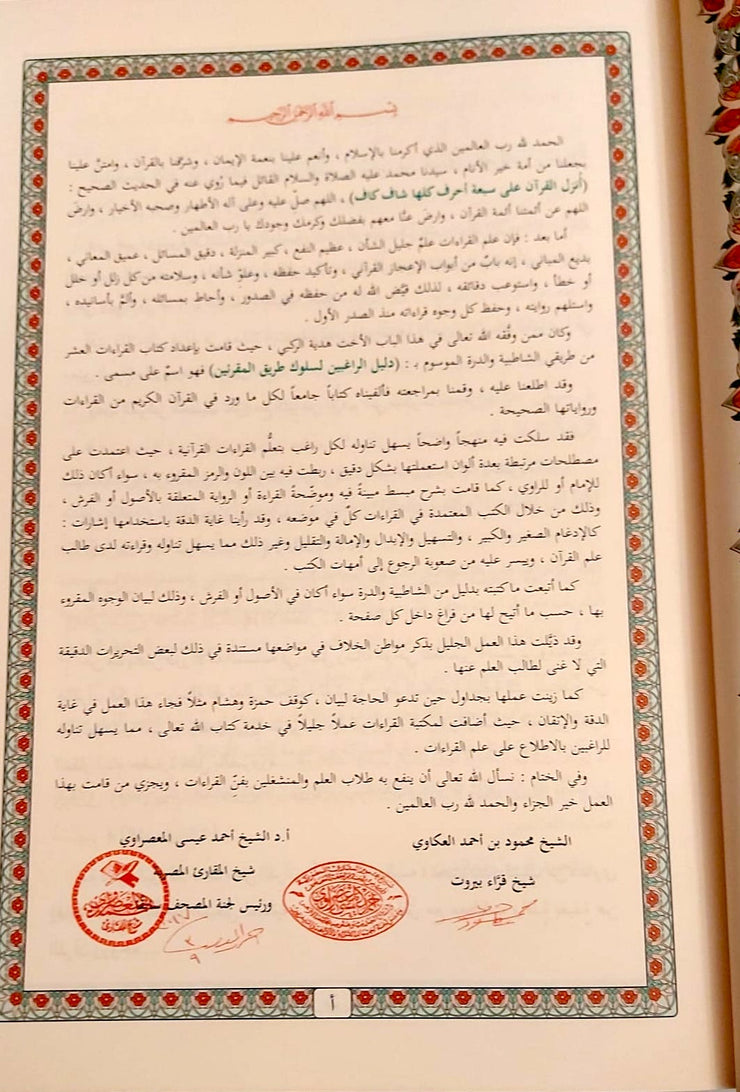 بسم الله الرحمن الرحيم
الحمد لله رب العالمين الذي أكرمنا بالإسلام ، وأنعم علينا بنعمة الإيمان ، وشرّفنا بالقرآن ، وامتنّ علينا
بجعلنا من أمة خير الأنام ، سيدنا محمد عليه الصلاة والسلام القائل فيما رُوي عنه في الحديث الصحيح :
(أُنزل القرآن على سبعة أحرف كلها شاف كاف) ، اللهم صلّ عليه وعلى آله الأطهار وصحبه الأخيار ، وارضَ
اللهم عن أئمتنا أئمة القرآن ، وارضَ عنّا معهم بفضلك وكرمك وجودك يا رب العالمين .
أما بعد : فإن علم القراءات علمٌ جليل الشأن ، عظيم النفع ، كبير المنزلة ، دقيق المسائل ، عميق المعاني ،
بديع المباني ، إنه بابٌ من أبواب الإعجاز القرآني ، وتأكيد حفظه ، وعلوّ شأنه ، وسلامته من كل زلل أو خلل
أو خطأ ، واستوعب دقائقه ، لذلك قيّض الله له من حفظه في الصدور ، وأحاط بمسائله ، وألمّ بأسانيده ،
واستلهم روايته ، وحفظ كل وجوه قراءاته منذ الصدر الأول .
وكان ممن وفّقه الله تعالى في هذا الباب الأخت هدية الركبي ، حيث قامت بإعداد كتاب القراءات العشر
من طريقي الشاطبية والدرة الموسوم بـ : (دليل الراغبين لسلوك طريق المقرئين) فهو اسمٌ على مسمى .
وقد اطلعنا عليه ، وقمنا بمراجعته فألفيناه كتاباً جامعاً لكل ما ورد في القرآن الكريم من القراءات
ورواياتها الصحيحة .
فقد سلكت فيه منهجاً واضحاً يسهل تناوله لكل راغب بتعلُّم القراءات القرآنية ، حيث اعتمدت على
مصطلحات مرتبطة بعدة ألوان استعملتها بشكل دقيق ، ربطت فيه بين اللون والرمز المقروء به ، سواء أكان ذلك
للإمام أو للراوي ، كما قامت بشرح مبسط مبينةً فيه وموضّحةً القراءة أو الرواية المتعلقة بالأصول أو الفرش ،
وذلك من خلال الكتب المعتمدة في القراءات كلّ في موضعه ، وقد رأينا غاية الدقة باستخدامها إشارات :
كالإدغام الصغير والكبير ، والتسهيل والإبدال والإمالة والتقليل وغير ذلك مما يسهل تناوله وقراءته لدى طالب
علم القرآن ، وييسر عليه من صعوبة الرجوع إلى أمهات الكتب .
كما أتبعت ما كتبته بدليل من الشاطبية والدرة سواء أكان في الأصول أو الفرش ، وذلك لبيان الوجوه المقروء
بها ، حسب ما أتيح لها من فراغ داخل كل صفحة .
وقد ذيَّلت هذا العمل الجليل بذكر مواطن الخلاف في مواضعها مستندة في ذلك لبعض التحريرات الدقيقة
التي لا غنى لطالب العلم عنها .
كما زينت عملها بجداول حين تدعو الحاجة لبيان ، كوقف حمزة وهشام مثلاً فجاء هذا العمل في غاية
الدقة والإتقان ، حيث أضافت لمكتبة القراءات عملاً جليلاً في خدمة كتاب الله تعالى ، مما يسهل تناوله
للراغبين بالاطلاع على علم القراءات .
وفي الختام : نسأل الله تعالى أن ينفع به طلاب العلم والمنشغلين بفنّ القراءات ، ويجزي من قامت بهذا
العمل خير الجزاء والحمد لله رب العالمين .
الشيخ محمود بن أحمد العكاوي
أ.د الشيخ أحمد عيسى المعصراوي
شيخ قرّاء بيروت
شيخ المقارئ المصرية
ورئيس لجنة المصحف
أ